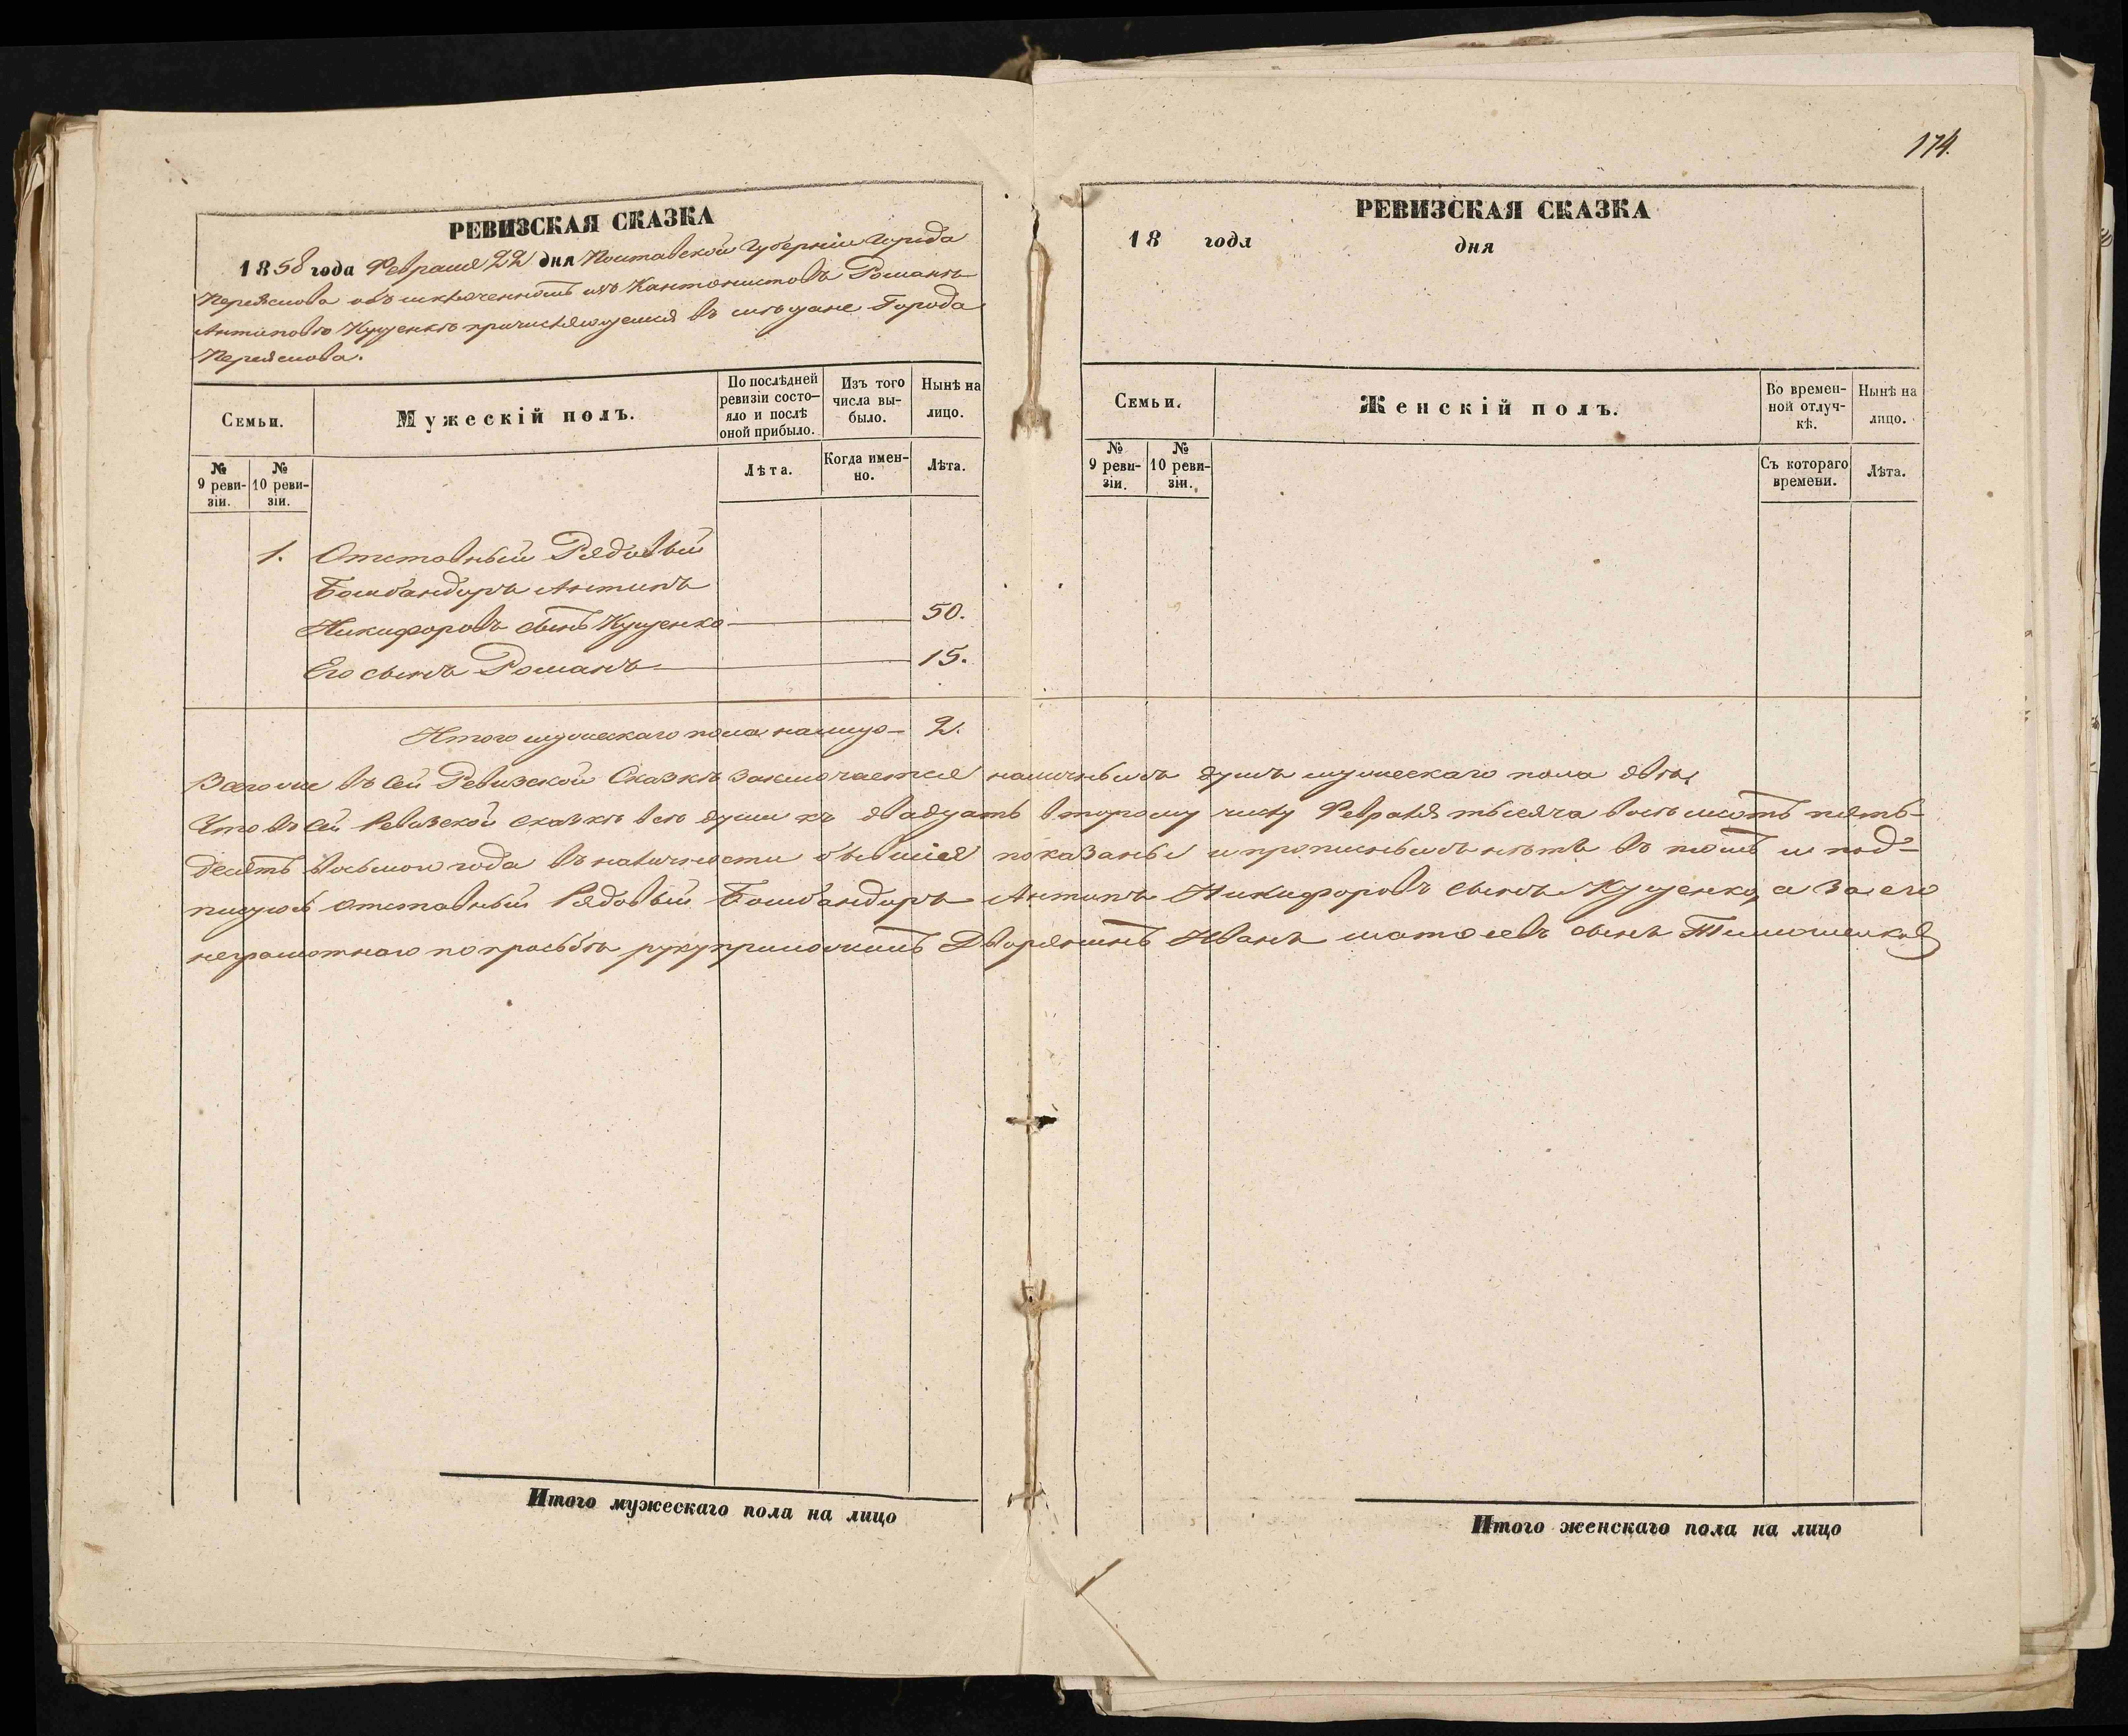 174.
РЕВИЗСКАЯ СКАЗКА
1858 года Февраля 22 дня Полтавской Губерніи Города
Переяслова объ исключенномъ изъ Кантонистовъ Романѣ
Антиповѣ Куценкѣ причисляющемся въ мѣщане Города
Переяслова.
Семьи.
Мужескій полъ.
По послѣдней ревизіи состояло и послѣ оной прибыло.
Изъ того числа выбыло.
Нынѣ на лицо.
№ 9 ревизіи.
№ 10 ревизіи.
Лѣта.
Когда именно.
Лѣта.
1. Отставный Рядовый
Бомбандиръ Антипъ
Никифоровъ сынъ Куценко 50.
Его сынъ Романъ 15.
Итого мужескаго пола налицо 2.
РЕВИЗСКАЯ СКАЗКА
18 года дня
Семьи.
Женскій полъ.
Во временной отлучкѣ.
Нынѣ на лицо.
№ 9 ревизіи.
№ 10 ревизіи.
Съ котораго времени.
Лѣта.
Всего же въ сей Ревизской Сказкѣ заключается наличныхъ душъ мужескаго пола двѣ,
Что въ сей Ревизской сказкѣ всѣ души къ двадцать второму числу Февраля тысяча восемьсотъ пять-
десятъ восьмого года въ наличности бывшія показаны и прописныхъ нѣтъ въ томъ и под-
писуюсь отставный Рядовый Бомбандиръ Антипъ Никифоровъ сынъ Куценко, а за его
неграмотнаго по просьбѣ руку приложилъ Дворянинъ Иванъ сынъ Тимошенко
Итого мужескаго пола на лицо
Итого женскаго пола на лицо